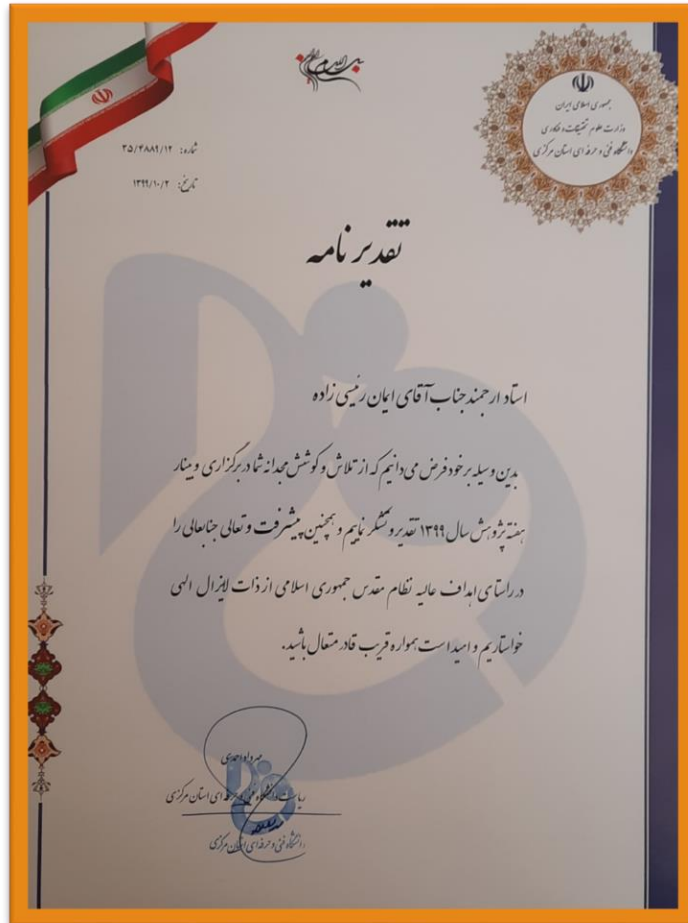 بسم الله الرحمن الرحیم
جمهوری اسلامی ایران
وزارت علوم تحقیقات و فناوری
دانشگاه فنی و حرفه ای استان مرکزی
شماره: ۳۵/۴۸۸۹/۱۲
تاریخ: ۱۳۹۹/۱۰/۲
تقدیر نامه
استاد ارجمند جناب آقای ایمان رئیسی زاده
بدین وسیله بر خود فرض می دانیم که از تلاش و کوشش مجدانه شما در برگزاری وبینار
هفته پژوهش سال ۱۳۹۹ تقدیر و تشکر نماییم و همچنین پیشرفت و تعالی جنابعالی را
در راستای اهداف عالیه نظام مقدس جمهوری اسلامی از ذات لایزال الهی
خواستاریم و امید است همواره قریب قادر متعال باشید.
مهرداد احدی
ریاست دانشگاه فنی و حرفه ای استان مرکزی
دانشگاه فنی و حرفه ای استان مرکزی